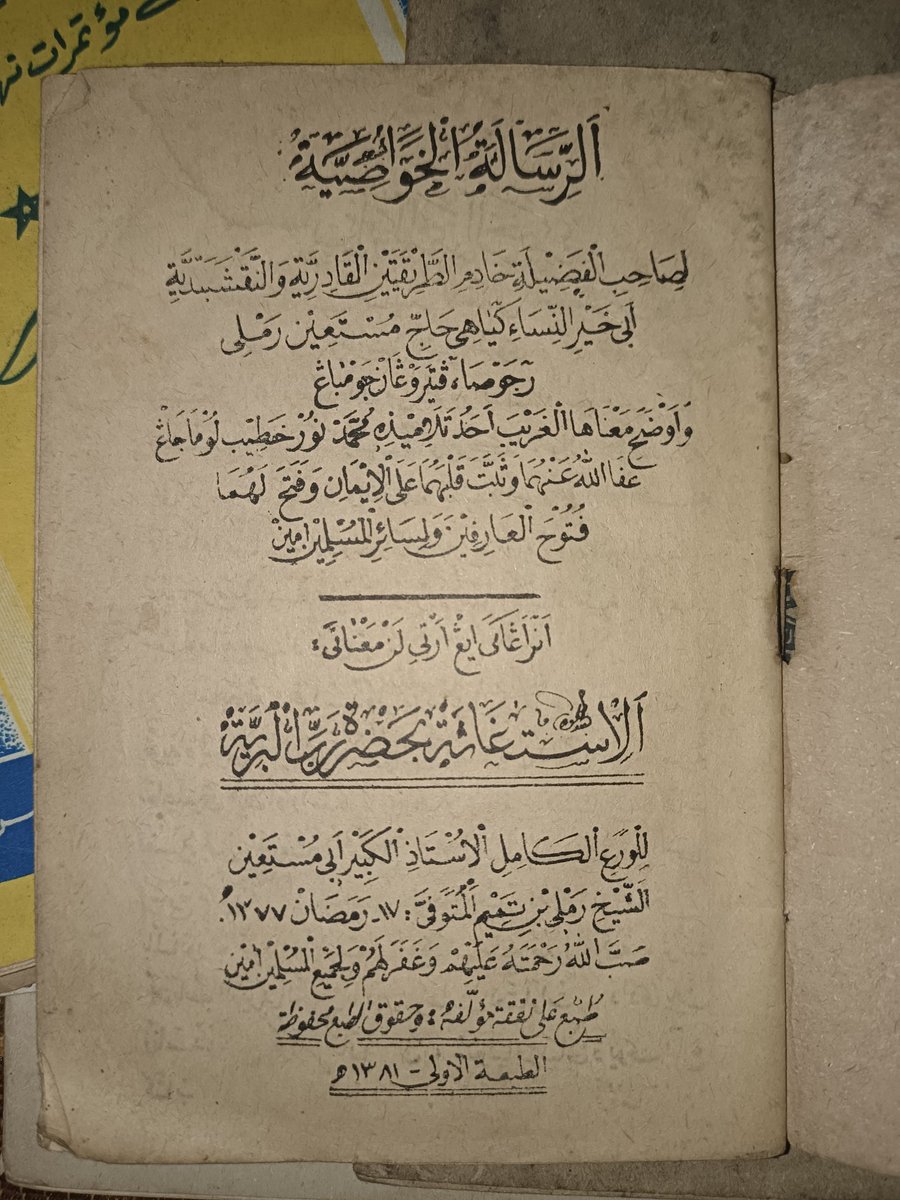 مؤتمرات نه
اَلرِّسَالَةُ الْخَوَاصِّيَّةُ
لِصَاحِبِ الْفَضِيْلَةِ خَادِمِ الطَّرِيْقَتَيْنِ الْقَادِرِيَّةِ وَالنَّقْشَبَنْدِيَّةِ
اَبِي خَيْرِ النِّسَاءِ كِيَاهِي حَاجّ مُسْتَعِيْن رَمْلِي
رجَوْصَاء ڤتَروْڠَان جَوْمْبَاڠ
وَاَوْضَحَ مَعْنَاهَا الْغَرِيْبَ اَحَدُ تَلَامِيْذِهِ مُحَمَّدْ نُوْرْ خَطِيْب لُوْمَاجَاڠ
عَفَا اللهُ عَنْهُمَا وَثَبَّتَ قَلْبَهُمَا عَلَى الْاِيْمَانِ وَفَتَحَ لَهُمَا
فُتُوْحَ الْعَارِفِيْنَ وَلِسَائِرِ الْمُسْلِمِيْنَ اٰمِيْنْ
اَنْرَاڠَاكَى ايڠْ اَرْتِي لَنْ مَعْنَانَى :
اَلْاِسْتِغَاثَةُ بِحَضْرَةِ رَبِّ الْبَرِيَّةِ
لِلْوَرِعِ الْكَامِلِ الْاُسْتَاذِ الْكَبِيْرِ اَبِي مُسْتَعِيْن
الشَّيْخِ رَمْلِي بْنِ تَمِيْمِ الْمُتَوَفَّى : ١٧ـ رَمَضَانْ ١٣٧٧.
صَبَّ اللهُ رَحْمَتَهُ عَلَيْهِمْ وَغَفَرَ لَهُمْ وَلِجَمِيْعِ الْمُسْلِمِيْنَ اٰمِيْن
طُبِعَ عَلَى نَفَقَةِ مُؤَلِّفِهِ : وَحُقُوقُ الطَّبْعِ مَحْفُوظَة
الطبعة الاولى - ١٣٨١ هـ